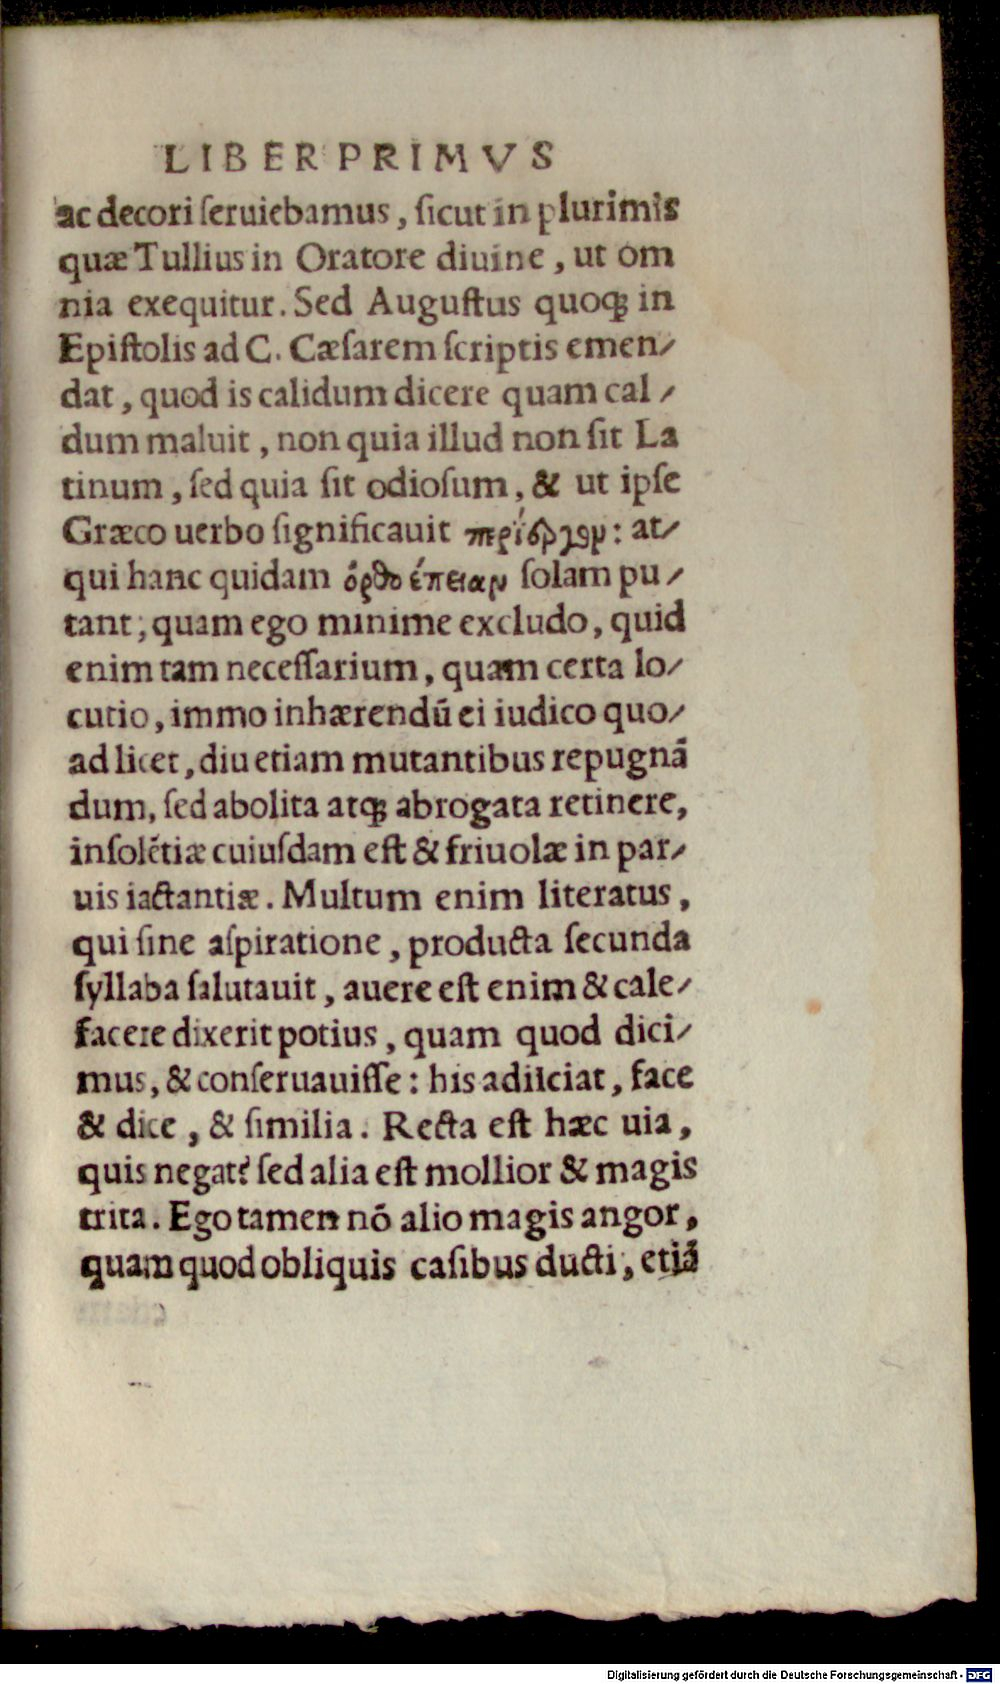 LIBER PRIMVS
ac decori ſeruiebamus, ſicut in plurimis
quæ Tullius in Oratore diuine, ut om
nia exequitur. Sed Auguſtus quoq; in
Epiſtolis ad C. Cæſarem ſcriptis emen/
dat, quod is calidum dicere quam cal/
dum maluit, non quia illud non ſit La
tinum, ſed quia ſit odioſum, & ut ipſe
Græco uerbo ſignificauit : at/
qui hanc quidam ὀρθοέπειαν ſolam pu/
tant, quam ego minime excludo, quid
enim tam neceſſarium, quam certa lo/
cutio, immo inhærendū ei iudico quo/
ad licet, diu etiam mutantibus repugnā
dum, ſed abolita atq; abrogata retinere,
inſolētiæ cuiuſdam eſt & friuolæ in par/
uis iactantiæ. Multum enim literatus,
qui ſine aſpiratione, producta ſecunda
ſyllaba ſalutauit, auere eſt enim & cale/
facere dixerit potius, quam quod dici/
mus, & conſeruauiſſe: his adiiciat, face
& dice, & ſimilia. Recta eſt hæc uia,
quis negat? ſed alia eſt mollior & magis
trita. Ego tamen nō alio magis angor,
quam quod obliquis caſibus ducti, etiā
Digitalisierung gefördert durch die Deutsche Forschungsgemeinschaft - DFG